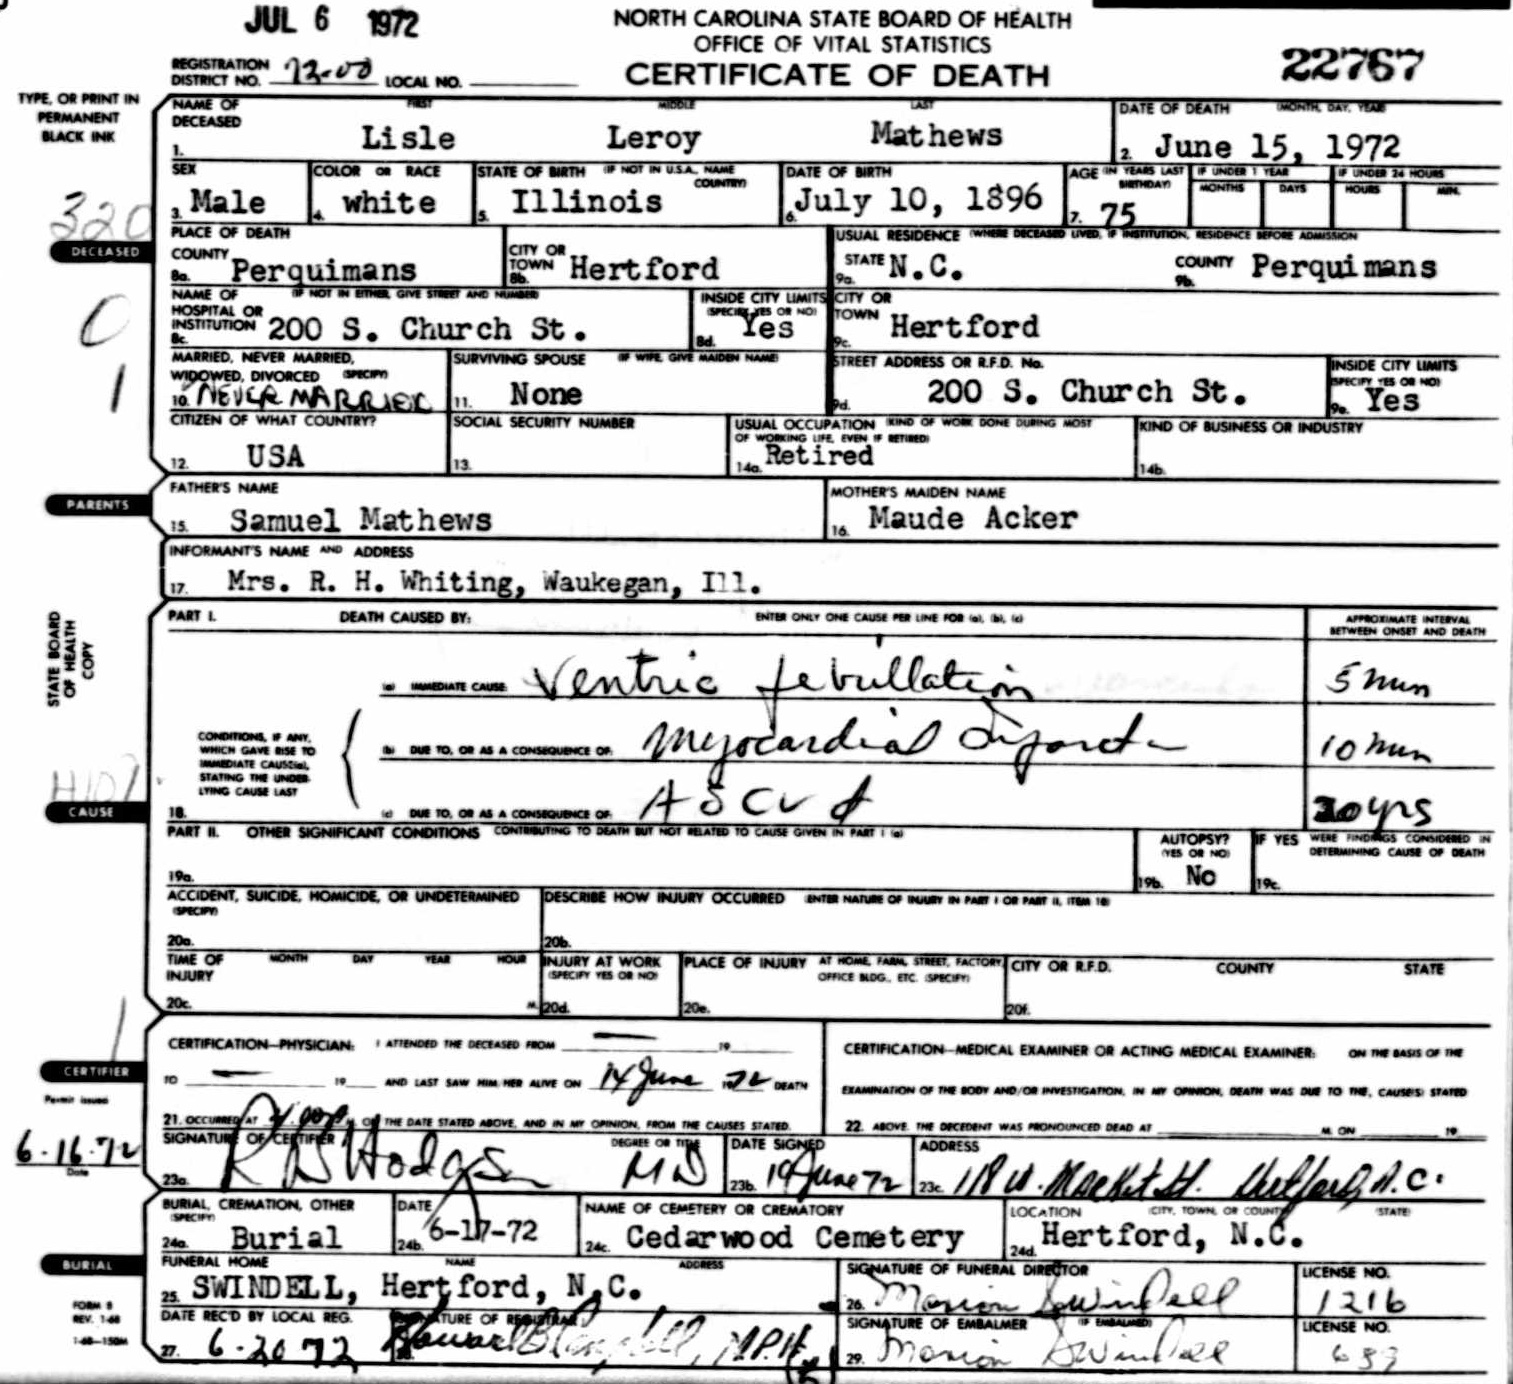 JUL 6 1972
NORTH CAROLINA STATE BOARD OF HEALTH
OFFICE OF VITAL STATISTICS
CERTIFICATE OF DEATH
22767
REGISTRATION DISTRICT NO. 72-00 LOCAL NO.
TYPE, OR PRINT IN
PERMANENT
BLACK INK
NAME OF DECEASED FIRST MIDDLE LAST
1. Lisle Leroy Mathews
DATE OF DEATH (MONTH, DAY, YEAR)
2. June 15, 1972
SEX
3. Male
COLOR OR RACE
4. white
STATE OF BIRTH (IF NOT IN U.S.A., NAME COUNTRY)
5. Illinois
DATE OF BIRTH
6. July 10, 1896
AGE (IN YEARS LAST BIRTHDAY)
7. 75
IF UNDER 1 YEAR
MONTHS DAYS
IF UNDER 24 HOURS
HOURS MIN.
320
DECEASED
PLACE OF DEATH
COUNTY
8a. Perquimans
CITY OR TOWN
8b. Hertford
USUAL RESIDENCE (WHERE DECEASED LIVED, IF INSTITUTION, RESIDENCE BEFORE ADMISSION
STATE
9a. N.C.
COUNTY
9b. Perquimans
0
NAME OF HOSPITAL OR INSTITUTION (IF NOT IN EITHER, GIVE STREET AND NUMBER)
8c. 200 S. Church St.
INSIDE CITY LIMITS (SPECIFY YES OR NO)
8d. Yes
CITY OR TOWN
9c. Hertford
1
MARRIED, NEVER MARRIED, WIDOWED, DIVORCED (SPECIFY)
10. NEVER MARRIED
SURVIVING SPOUSE (IF WIFE, GIVE MAIDEN NAME)
11. None
STREET ADDRESS OR R.F.D. No.
9d. 200 S. Church St.
INSIDE CITY LIMITS (SPECIFY YES OR NO)
9e. Yes
CITIZEN OF WHAT COUNTRY?
12. USA
SOCIAL SECURITY NUMBER
13.
USUAL OCCUPATION (KIND OF WORK DONE DURING MOST OF WORKING LIFE, EVEN IF RETIRED)
14a. Retired
KIND OF BUSINESS OR INDUSTRY
14b.
PARENTS
FATHER'S NAME
15. Samuel Mathews
MOTHER'S MAIDEN NAME
16. Maude Acker
INFORMANT'S NAME AND ADDRESS
17. Mrs. R. H. Whiting, Waukegan, Ill.
STATE BOARD
OF HEALTH
COPY
PART I. DEATH CAUSED BY: ENTER ONLY ONE CAUSE PER LINE FOR (a), (b), (c)
APPROXIMATE INTERVAL BETWEEN ONSET AND DEATH
(a) IMMEDIATE CAUSE: Ventric febrillation 5 min
CONDITIONS, IF ANY,
WHICH GAVE RISE TO
IMMEDIATE CAUSE(a),
STATING THE UNDER-
LYING CAUSE LAST
(b) DUE TO, OR AS A CONSEQUENCE OF: Myocardial 10 min
18. (c) DUE TO, OR AS A CONSEQUENCE OF: ASCVd yrs
CAUSE
PART II. OTHER SIGNIFICANT CONDITIONS CONTRIBUTING TO DEATH BUT NOT RELATED TO CAUSE GIVEN IN PART I (a)
19a.
AUTOPSY? (YES OR NO)
19b. No
IF YES WERE FINDINGS CONSIDERED IN DETERMINING CAUSE OF DEATH
19c.
ACCIDENT, SUICIDE, HOMICIDE, OR UNDETERMINED (SPECIFY)
20a.
DESCRIBE HOW INJURY OCCURRED (ENTER NATURE OF INJURY IN PART I OR PART II, ITEM 18)
20b.
TIME OF INJURY MONTH DAY YEAR HOUR
20c. M.
INJURY AT WORK (SPECIFY YES OR NO)
20d.
PLACE OF INJURY AT HOME, FARM, STREET, FACTORY, OFFICE BLDG., ETC. (SPECIFY)
20e.
CITY OR R.F.D. COUNTY STATE
20f.
1
CERTIFIER
CERTIFICATION—PHYSICIAN: I ATTENDED THE DECEASED FROM — 19
TO — 19 AND LAST SAW HIM/HER ALIVE ON 14 June 1972 DEATH
21. OCCURRED AT M. OF THE DATE STATED ABOVE, AND IN MY OPINION, FROM THE CAUSES STATED.
CERTIFICATION—MEDICAL EXAMINER OR ACTING MEDICAL EXAMINER: ON THE BASIS OF THE
EXAMINATION OF THE BODY AND/OR INVESTIGATION, IN MY OPINION, DEATH WAS DUE TO THE, CAUSE(S) STATED
22. ABOVE. THE DECEDENT WAS PRONOUNCED DEAD AT M. ON 19
Permit issued
6-16-72
Date
SIGNATURE OF CERTIFIER DEGREE OR TITLE
23a. Hodgson MD
DATE SIGNED
23b. June 72
ADDRESS
23c. 118 W. Market St. Hertford, N.C.
BURIAL, CREMATION, OTHER (SPECIFY)
24a. Burial
DATE
24b. 6-17-72
NAME OF CEMETERY OR CREMATORY
24c. Cedarwood Cemetery
LOCATION (CITY, TOWN, OR COUNTY) (STATE)
24d. Hertford, N.C.
BURIAL
FUNERAL HOME NAME ADDRESS
25. SWINDELL, Hertford, N.C.
SIGNATURE OF FUNERAL DIRECTOR
26. Marion Swindell
LICENSE NO.
1216
FORM 8
REV. 1-68
1-68—150M
DATE REC'D BY LOCAL REG.
27. 6-20-72
SIGNATURE OF REGISTRAR
28. M.P.H.
SIGNATURE OF EMBALMER (IF EMBALMED)
29. Marion Swindell
LICENSE NO.